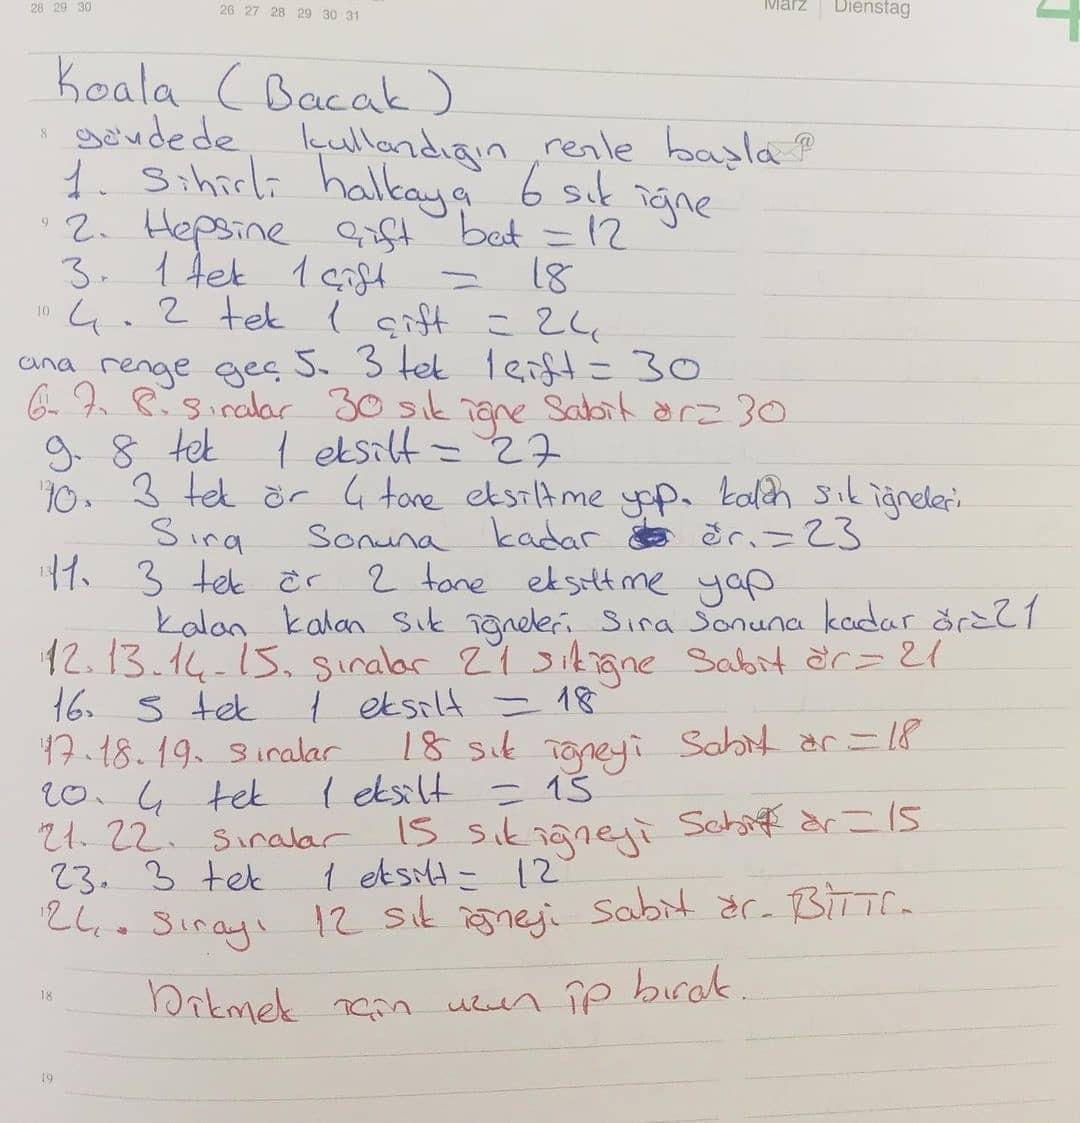 28 29 30
26 27 28 29 30 31
März Dienstag
4
Koala (Bacak)
8 gövdede kullandığın renle başla @
1. Sihirli halkaya 6 sık iğne
9 2. Hepsine çift bat = 12
3. 1 tek 1 çift = 18
10 4. 2 tek 1 çift = 24
ana renge geç 5. 3 tek 1 çift = 30
6. 7. 8. sıralar 30 sık iğne Sabit ör = 30
9. 8 tek 1 eksilt = 27
10. 3 tek ör 4 tane eksiltme yap. kalan sık iğneleri
Sıra Sonuna kadar ör. = 23
11. 3 tek ör 2 tane eksiltme yap
kalan kalan sık iğneleri Sıra Sonuna kadar ör = 21
12. 13. 14. 15. sıralar 21 sık iğne Sabit ör = 21
16. 5 tek 1 eksilt = 18
17. 18. 19. sıralar 18 sık iğneyi Sabit ör = 18
20. 4 tek 1 eksilt = 15
21. 22. sıralar 15 sık iğneyi Sabit ör = 15
23. 3 tek 1 eksilt = 12
24. Sırayı 12 sık iğneyi sabit ör. BİTTİ.
18 Dikmek için uzun ip bırak.
19